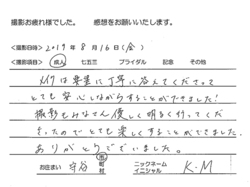 撮影お疲れ様でした。 感想をお願いいたします。
<撮影日時> 2019年 8月 16日(金)
<撮影項目> 成人 七五三 ブライダル 記念 その他
メイクは要望に丁寧に応えてくださって
とても安心しながらすることができました!
撮影もみなさん優しく明るく行ってくだ
さったのでとても楽しくすることができました。
ありがとうございました。
お住まい 守谷 市 町 村 ニックネーム イニシャル K-M